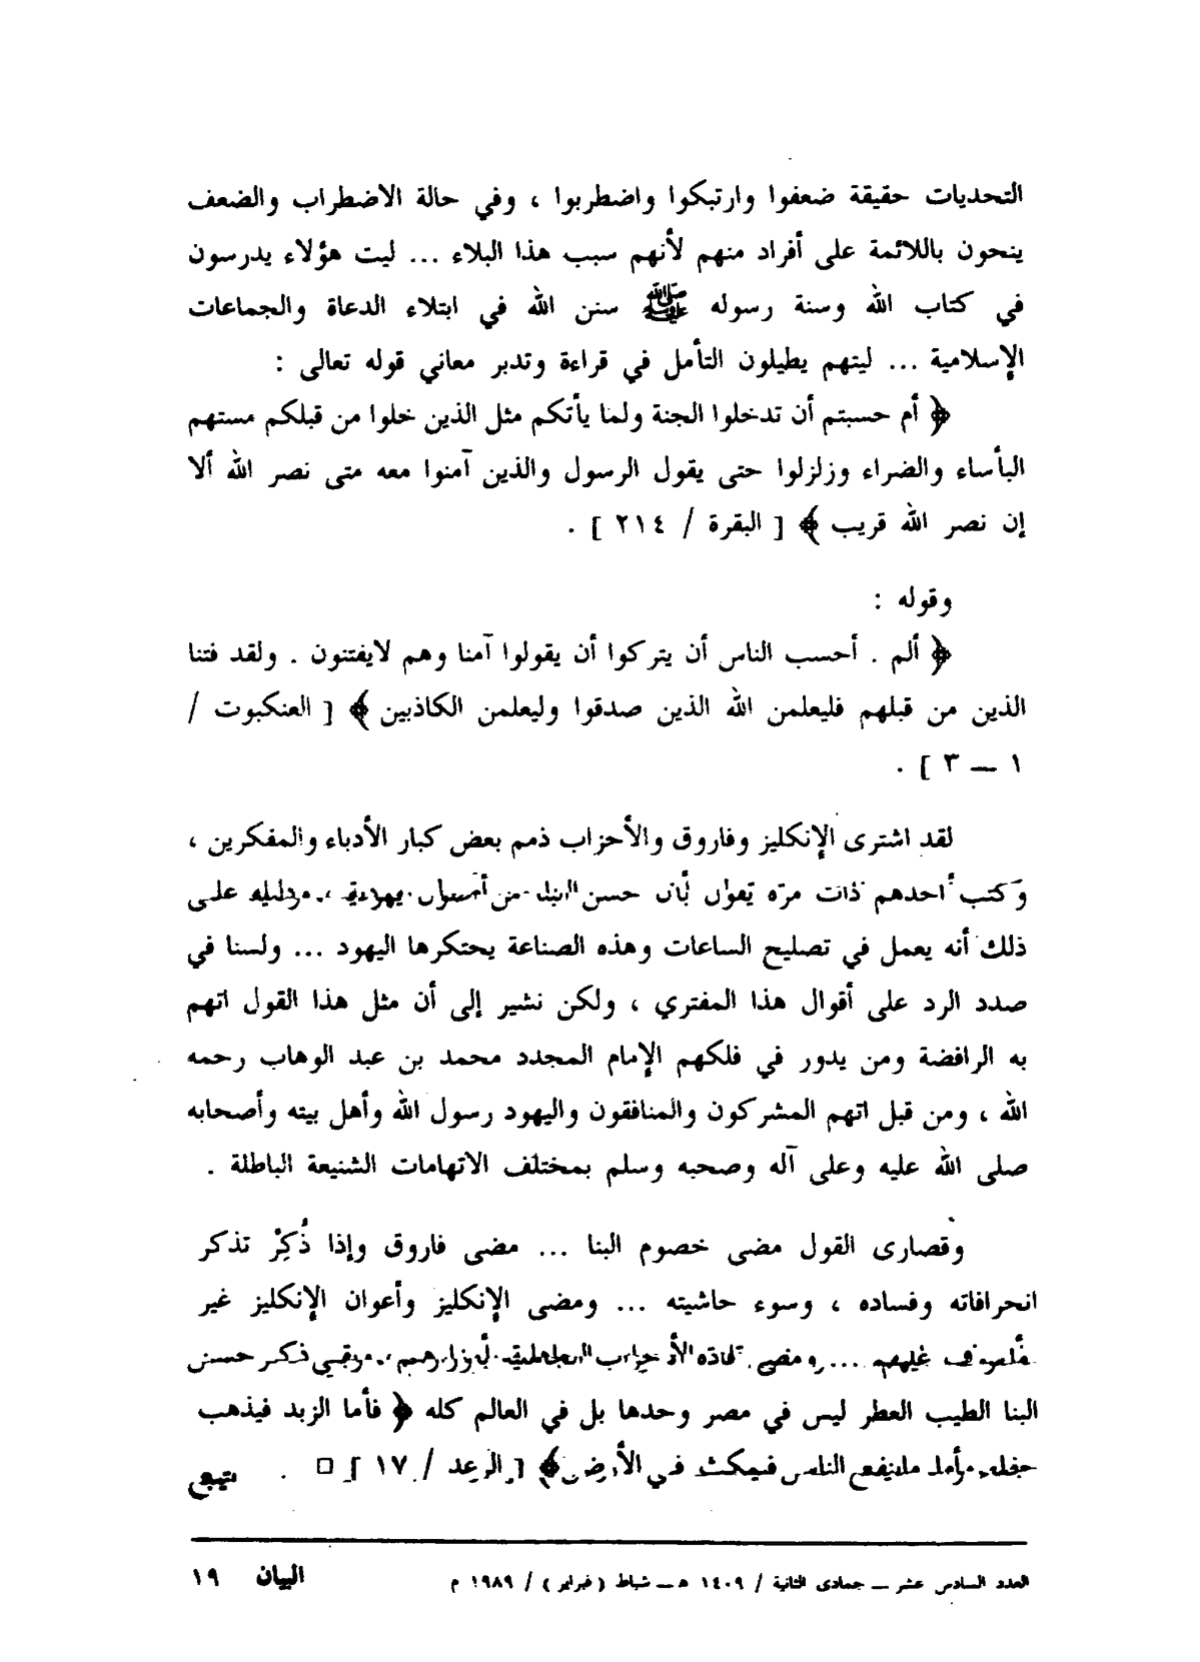 التحديات حقيقة ضعفوا وارتبكوا واضطربوا ، وفي حالة الاضطراب والضعف
ينحون باللائمة على أفراد منهم لأنهم سبب هذا البلاء ... ليت هؤلاء يدرسون
في كتاب الله وسنة رسوله ﷺ سنن الله في ابتلاء الدعاة والجماعات
الإسلامية ... ليتهم يطيلون التأمل في قراءة وتدبر معاني قوله تعالى :
﴿ أم حسبتم أن تدخلوا الجنة ولما يأتكم مثل الذين خلوا من قبلكم مستهم
البأساء والضراء وزلزلوا حتى يقول الرسول والذين آمنوا معه متى نصر الله ألا
إن نصر الله قريب ﴾ [ البقرة / ٢١٤ ] .
وقوله :
﴿ ألم . أحسب الناس أن يتركوا أن يقولوا آمنا وهم لايفتنون . ولقد فتنا
الذين من قبلهم فليعلمن الله الذين صدقوا وليعلمن الكاذبين ﴾ [ العنكبوت /
١ ــ ٣ ] .
لقد اشترى الإنكليز وفاروق والأحزاب ذمم بعض كبار الأدباء والمفكرين ،
وكتب أحدهم ذات مرة يقول بأن حسن البنا من أصول يهودية ، ودليله على
ذلك أنه يعمل في تصليح الساعات وهذه الصناعة يحتكرها اليهود ... ولسنا في
صدد الرد على أقوال هذا المفتري ، ولكن نشير إلى أن مثل هذا القول اتهم
به الرافضة ومن يدور في فلكهم الإمام المجدد محمد بن عبد الوهاب رحمه
الله ، ومن قبل اتهم المشركون والمنافقون واليهود رسول الله وأهل بيته وأصحابه
صلى الله عليه وعلى آله وصحبه وسلم بمختلف الاتهامات الشنيعة الباطلة .
وقصارى القول مضى خصوم البنا ... مضى فاروق وإذا ذُكِرْ تذكر
انحرافاته وفساده ، وسوء حاشيته ... ومضى الإنكليز وأعوان الإنكليز غير
مأسوف عليهم ... ومضى قادة الأحزاب الجاهلية بأوزارهم ، وبقي فكر حسن
البنا الطيب العطر ليس في مصر وحدها بل في العالم كله ﴿ فأما الزبد فيذهب
جفاء وأما ماينفع الناس فيمكث في الأرض ﴾ [ الرعد / ١٧ ] □ . يتبع
العدد السادس عشر ــ جمادى الثانية / ١٤٠٩ هـ ــ شباط ( فبراير ) / ١٩٨٩ م البيان ١٩